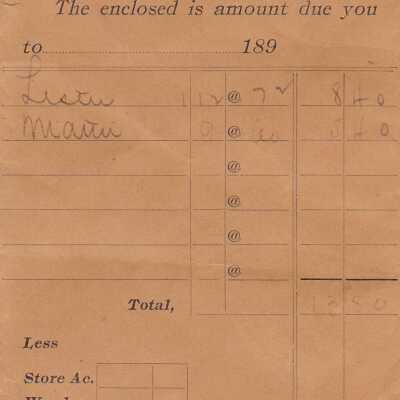 The enclosed is amount due you
to 189
Lester 112 @ 7½ 8 40
9 @ 60 5 40
@
@
@
@
Total, 13 80
Less
Store Ac.